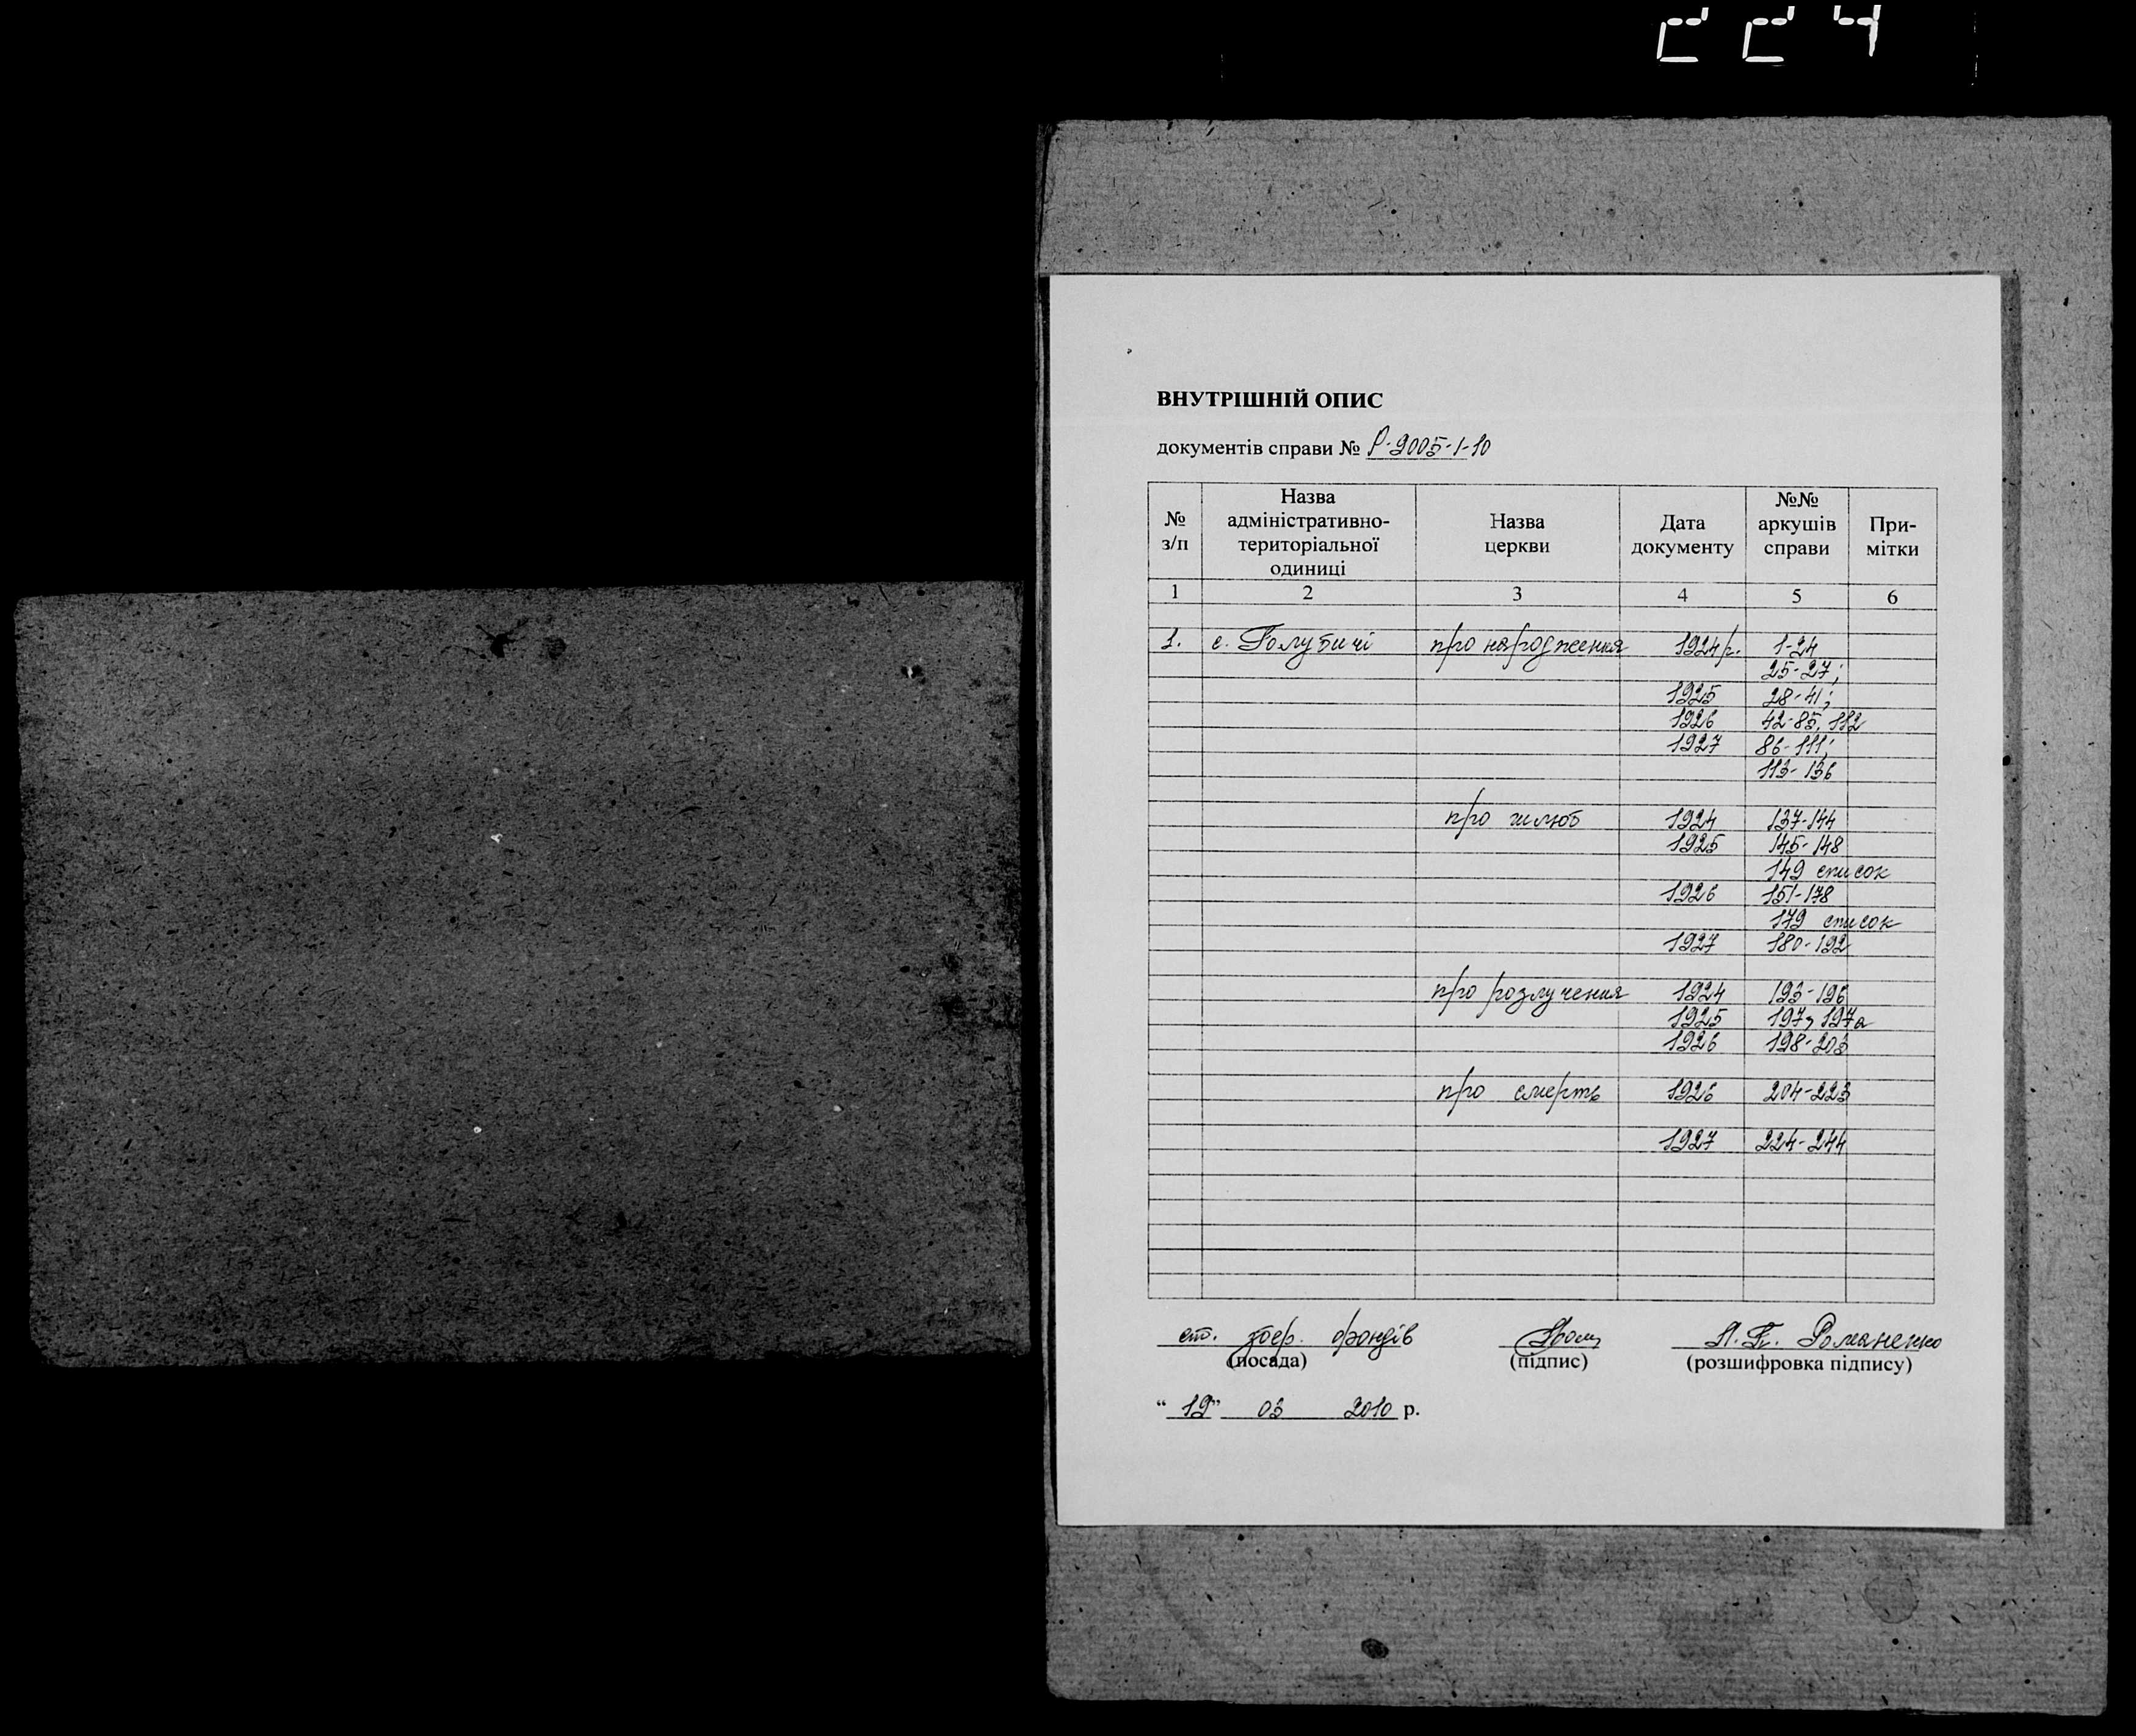 224
ВНУТРІШНІЙ ОПИС
документів справи № Р-9005-1-10
№ з/п
Назва адміністративно-територіальної одиниці
Назва церкви
Дата документу
№№ аркушів справи
При-мітки
1 2 3 4 5 6
1. с. Голубичі про народження 1924р. 1-24
25-27;
1925 28-41;
1926 42-85, 112
1927 86-111;
113-136
про шлюб 1924 137-144
1925 145-148
149 список
1926 151-178
179 список
1927 180-192
про розлучення 1924 193-196
1925 197, 197а
1926 198-203
про смерть 1926 204-223
1927 224-244
ст. збер. фондів Л.Г. Романенко
(посада) (підпис) (розшифровка підпису)
"19" 03 2010 р.